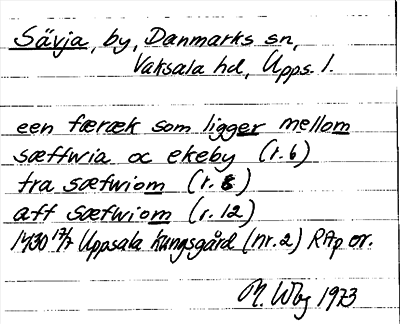 Sävja, by, Danmarks sn,
Vaksala hd, Upps. l.
een færæk som ligger mellom
sæffwia oc ekeby (r. 6)
fra sæfwiom (r. 8)
aff sæfwiom (r. 12)
1430 17/7 Uppsala kungsgård (nr. 2) RAp or.
M. Wbg 1973